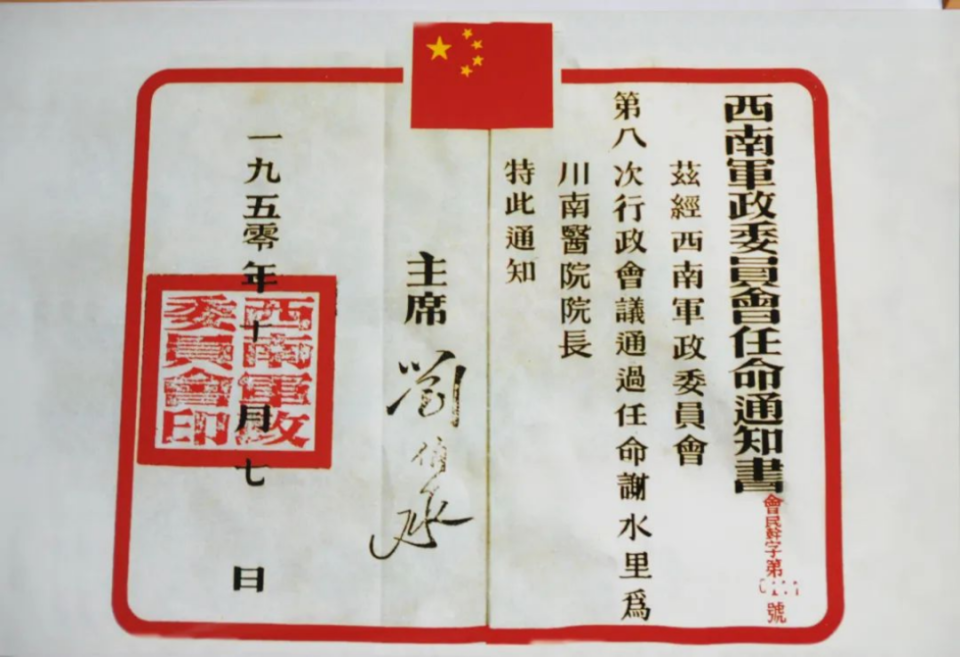 西南軍政委員會任命通知書
會民幹字第 號
茲經西南軍政委員會
第八次行政會議通過任命謝水里爲
川南醫院院長
特此通知
主席 劉伯承
一九五零年十月七日
西南軍政
委員會印